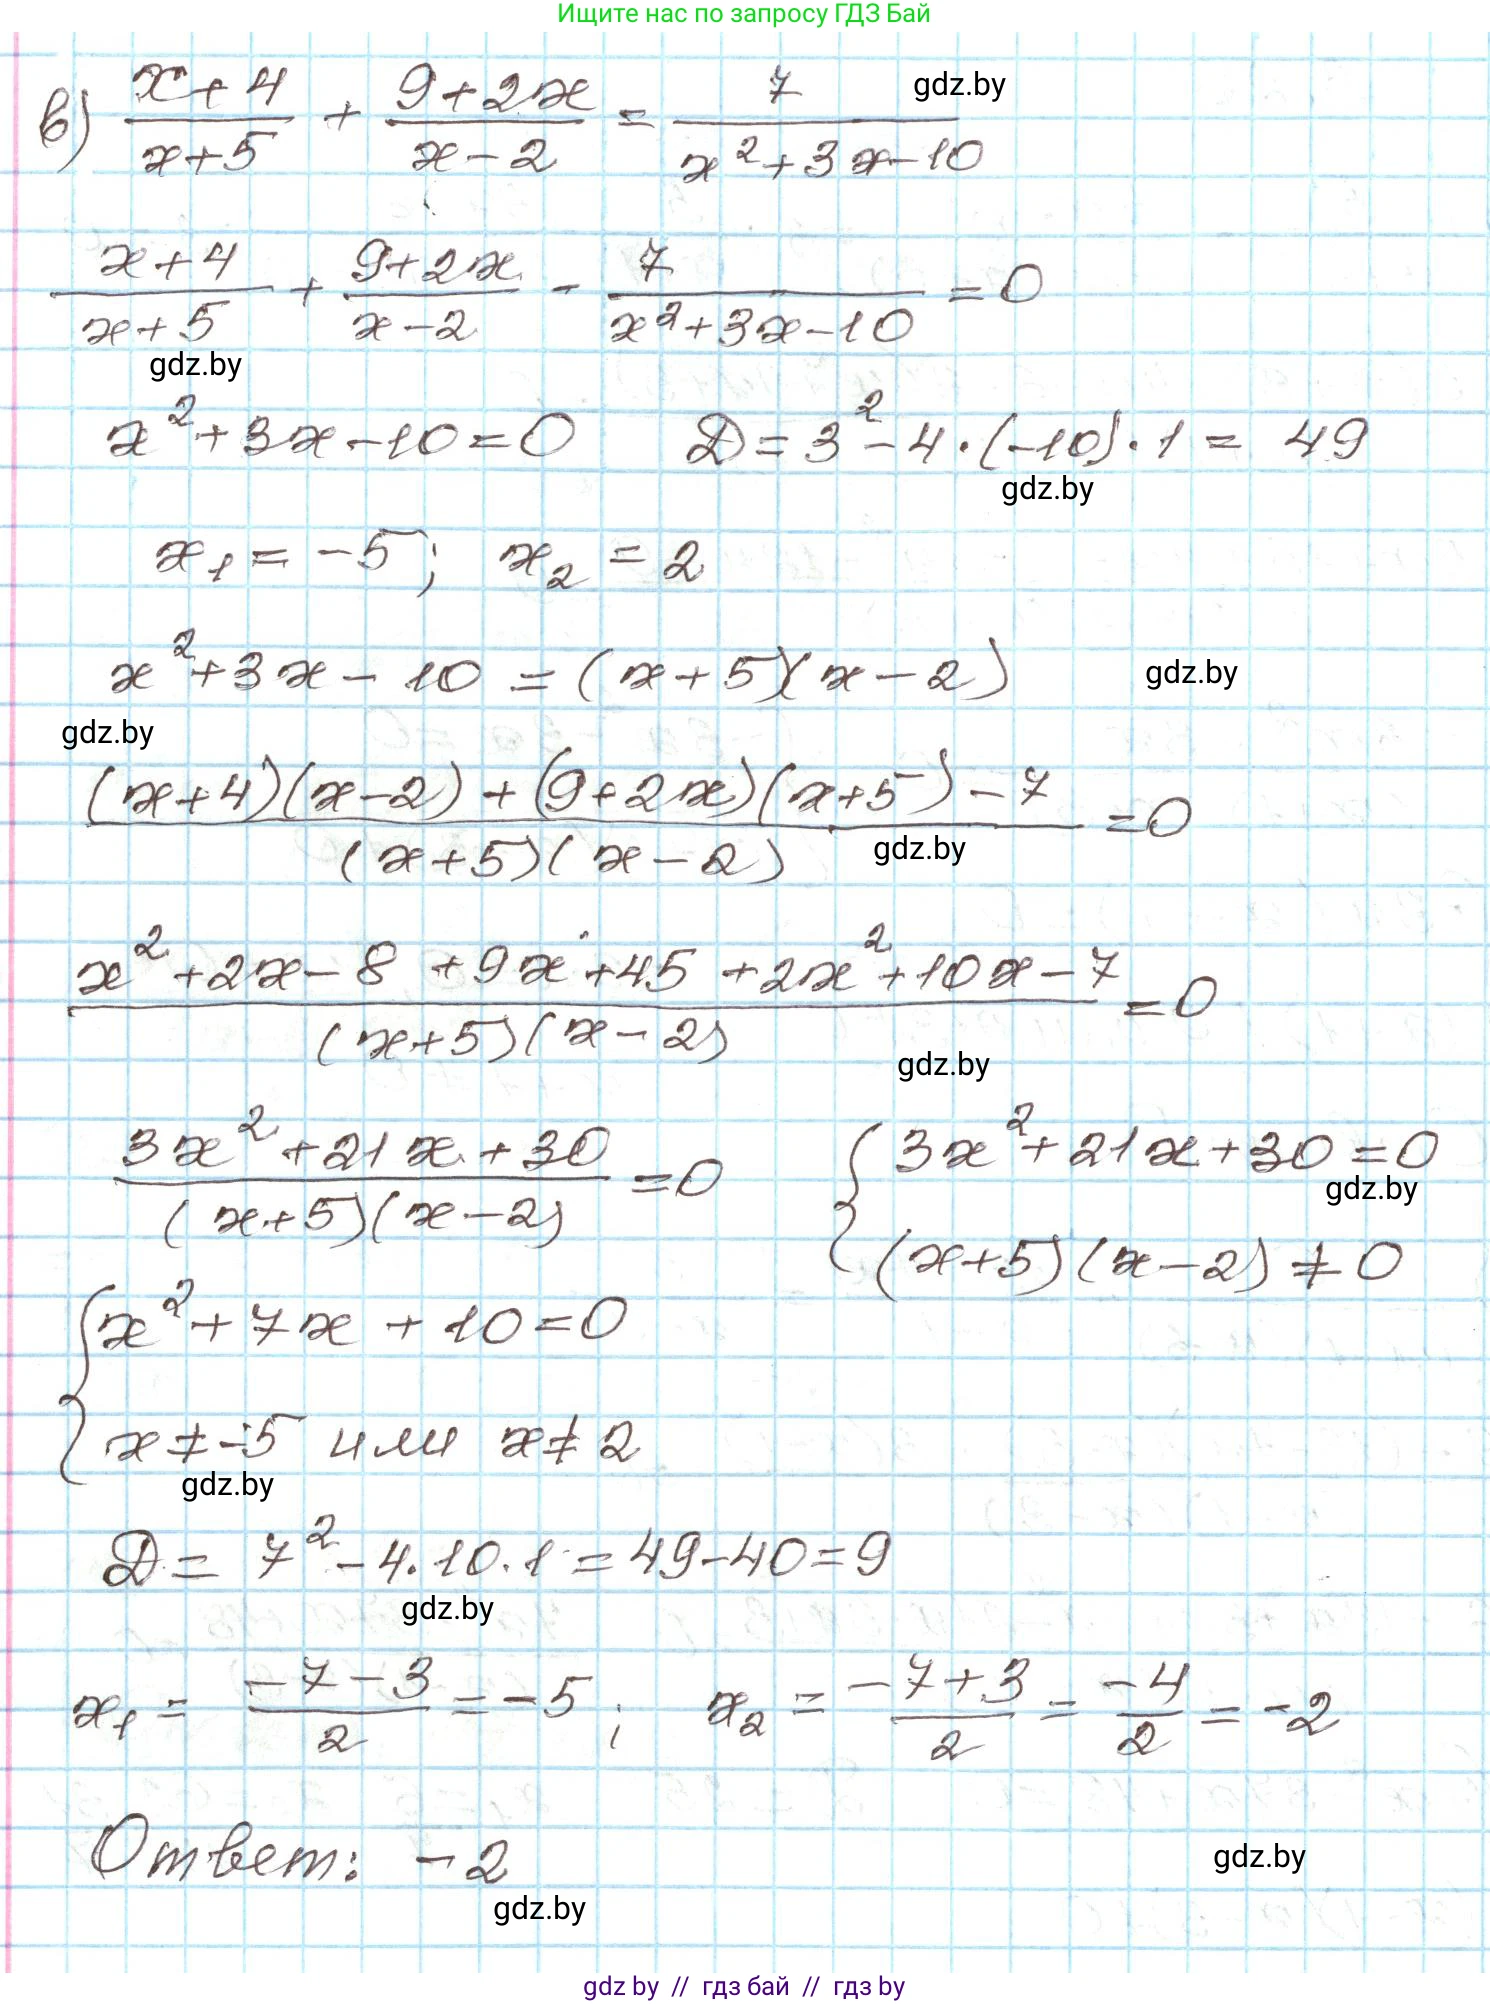 Ищите нас по запросу ГДЗ Бай
в) (x+4)/(x+5) + (9+2x)/(x-2) = 7/(x²+3x-10)
gdz.by
(x+4)/(x+5) + (9+2x)/(x-2) - 7/(x²+3x-10) = 0
gdz.by
x²+3x-10=0 Д=3²-4·(-10)·1= 49
gdz.by
x₁=-5; x₂=2
x²+3x-10=(x+5)(x-2)
gdz.by
gdz.by
((x+4)(x-2)+(9+2x)(x+5)-7)/((x+5)(x-2)) =0
gdz.by
(x²+2x-8+9x+45+2x²+10x-7)/((x+5)(x-2)) =0
gdz.by
(3x²+21x+30)/((x+5)(x-2)) =0 { 3x²+21x+30=0
gdz.by
(x+5)(x-2)≠0
{ x²+7x+10=0
x≠-5 или x≠2
gdz.by
Д= 7²-4·10·1=49-40=9
gdz.by
x₁= (-7-3)/2 =-5; x₂= (-7+3)/2 = -4/2 =-2
Ответ: -2
gdz.by
gdz.by
gdz by // гдз бай // гдз by